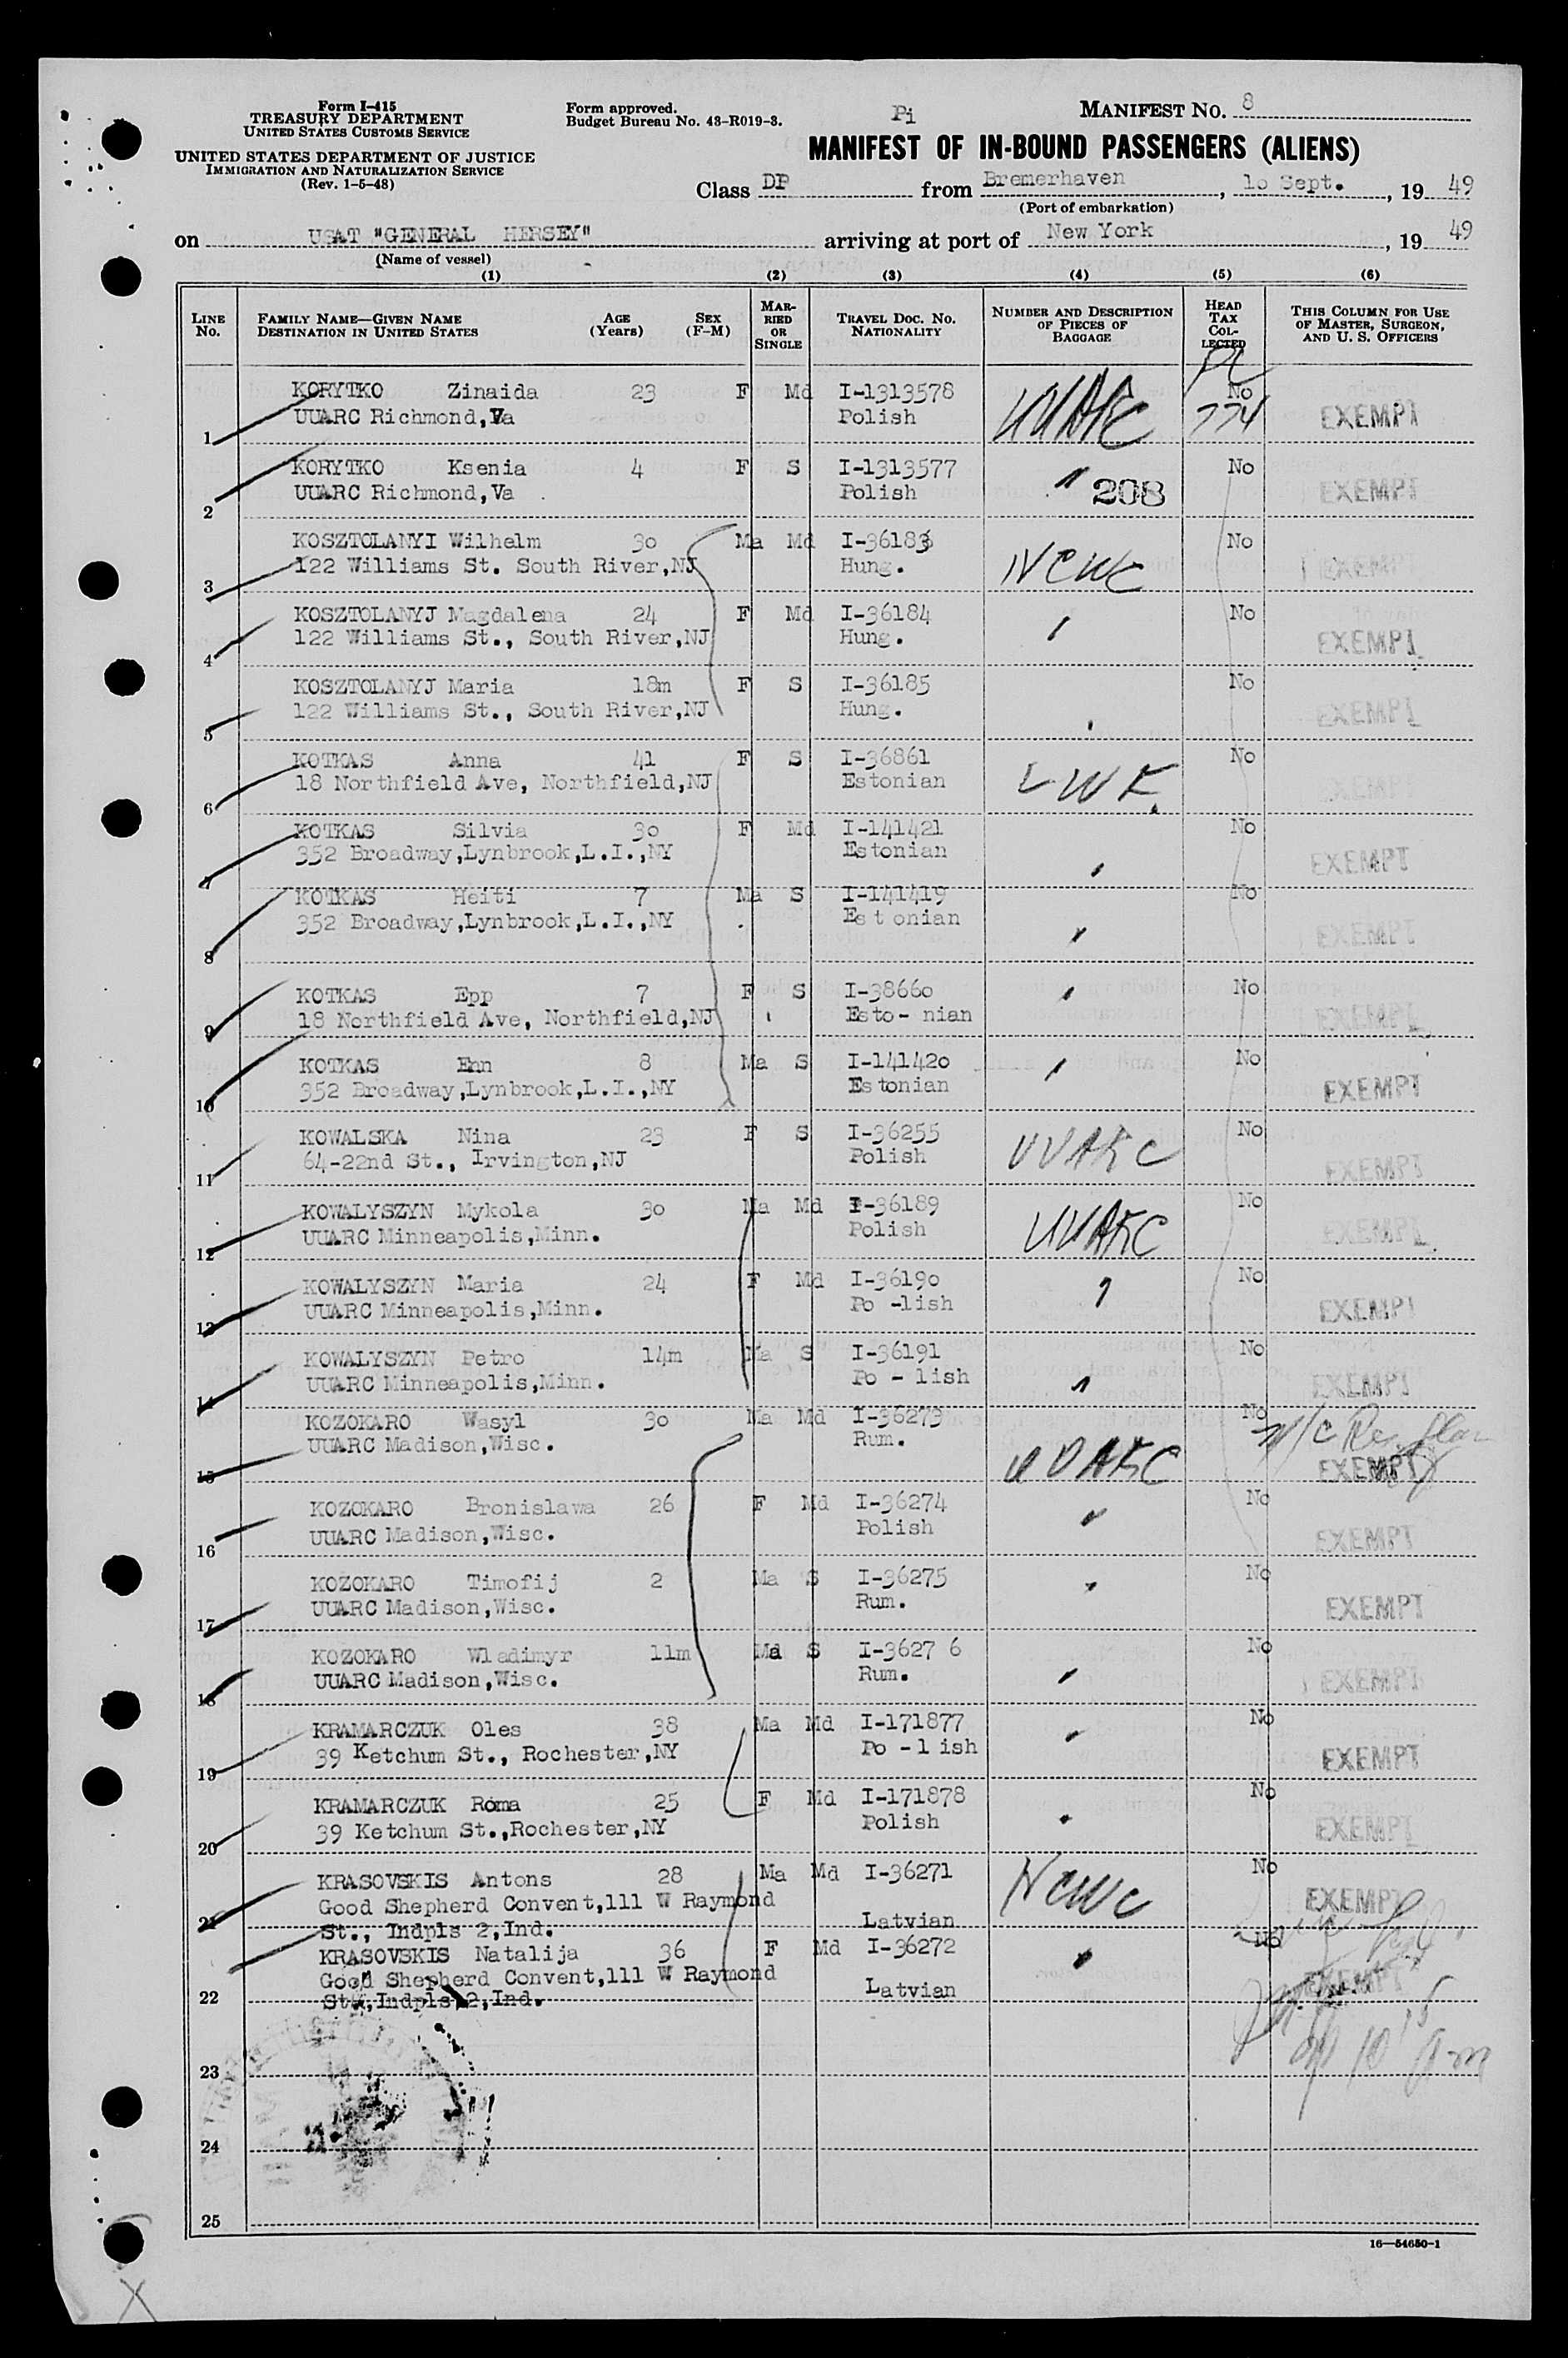 Form I-415
TREASURY DEPARTMENT
UNITED STATES CUSTOMS SERVICE
UNITED STATES DEPARTMENT OF JUSTICE
IMMIGRATION AND NATURALIZATION SERVICE
(Rev. 1-5-48)
Form approved.
Budget Bureau No. 43-R019-3.
Pi
MANIFEST NO. 8
MANIFEST OF IN-BOUND PASSENGERS (ALIENS)
Class DP from Bremerhaven, 10 Sept., 19 49
(Port of embarkation)
on USAT "GENERAL HERSEY" arriving at port of New York, 19 49
(Name of vessel)
(1) (2) (3) (4) (5) (6)
LINE No. FAMILY NAME—GIVEN NAME DESTINATION IN UNITED STATES AGE (Years) SEX (F-M) MARRIED OR SINGLE TRAVEL DOC. NO. NATIONALITY NUMBER AND DESCRIPTION OF PIECES OF BAGGAGE HEAD TAX COLLECTED THIS COLUMN FOR USE OF MASTER, SURGEON, AND U. S. OFFICERS
KORYTKO Zinaida 23 F Md I-1313578 UUARC No
1 UUARC Richmond, Va Polish 774 EXEMPT
KORYTKO Ksenia 4 F S I-1313577 No
2 UUARC Richmond, Va Polish 208 EXEMPT
KOSZTOLANYI Wilhelm 30 Ma Md I-36183 No
3 122 Williams St. South River,NJ Hung. NCWC EXEMPT
KOSZTOLANYJ Magdalena 24 F Md I-36184 No
4 122 Williams St., South River,NJ Hung. EXEMPT
KOSZTOLANYJ Maria 18m F S I-36185 No
5 122 Williams St., South River,NJ Hung. EXEMPT
KOTKAS Anna 41 F S I-36861 No
6 18 Northfield Ave, Northfield,NJ Estonian LWF. EXEMPT
KOTKAS Silvia 30 F Md I-141421 No
7 352 Broadway,Lynbrook,L.I.,NY Estonian EXEMPT
KOTKAS Heiti 7 Ma S I-141419 No
8 352 Broadway,Lynbrook,L.I.,NY Est onian EXEMPT
KOTKAS Epp 7 F S I-38660 No
9 18 Northfield Ave, Northfield,NJ Esto- nian EXEMPT
KOTKAS Enn 8 Ma S I-141420 No
10 352 Broadway,Lynbrook,L.I.,NY Estonian EXEMPT
KOWALSKA Nina 23 F S I-36255 No
11 64-22nd St., Irvington,NJ Polish UUARC EXEMPT
KOWALYSZYN Mykola 30 Ma Md I-36189 No
12 UUARC Minneapolis,Minn. Polish UUARC EXEMPT
KOWALYSZYN Maria 24 F Md I-36190 No
13 UUARC Minneapolis,Minn. Po -lish EXEMPT
KOWALYSZYN Petro 14m Ma S I-36191 No
14 UUARC Minneapolis,Minn. Po - lish EXEMPT
KOZOKARO Wasyl 30 Ma Md I-36273 No
15 UUARC Madison,Wisc. Rum. UUARC EXEMPT
KOZOKARO Bronislawa 26 F Md I-36274 No
16 UUARC Madison,Wisc. Polish EXEMPT
KOZOKARO Timofij 2 Ma S I-36275 No
17 UUARC Madison,Wisc. Rum. EXEMPT
KOZOKARO Wladimyr 11m Ma S I-3627 6 No
18 UUARC Madison,Wisc. Rum. EXEMPT
KRAMARCZUK Oles 38 Ma Md I-171877 No
19 39 Ketchum St., Rochester,NY Po -l ish EXEMPT
KRAMARCZUK Roma 25 F Md I-171878 No
20 39 Ketchum St.,Rochester,NY Polish EXEMPT
KRASOVSKIS Antons 28 Ma Md I-36271 NCWC No
Good Shepherd Convent,111 W Raymond EXEMPT
21 St., Indpls 2,Ind. Latvian
KRASOVSKIS Natalija 36 F Md I-36272 No
Good Shepherd Convent,111 W Raymond Latvian EXEMPT
22 St.,Indpls 2,Ind.
23
24
25
16—54650-1